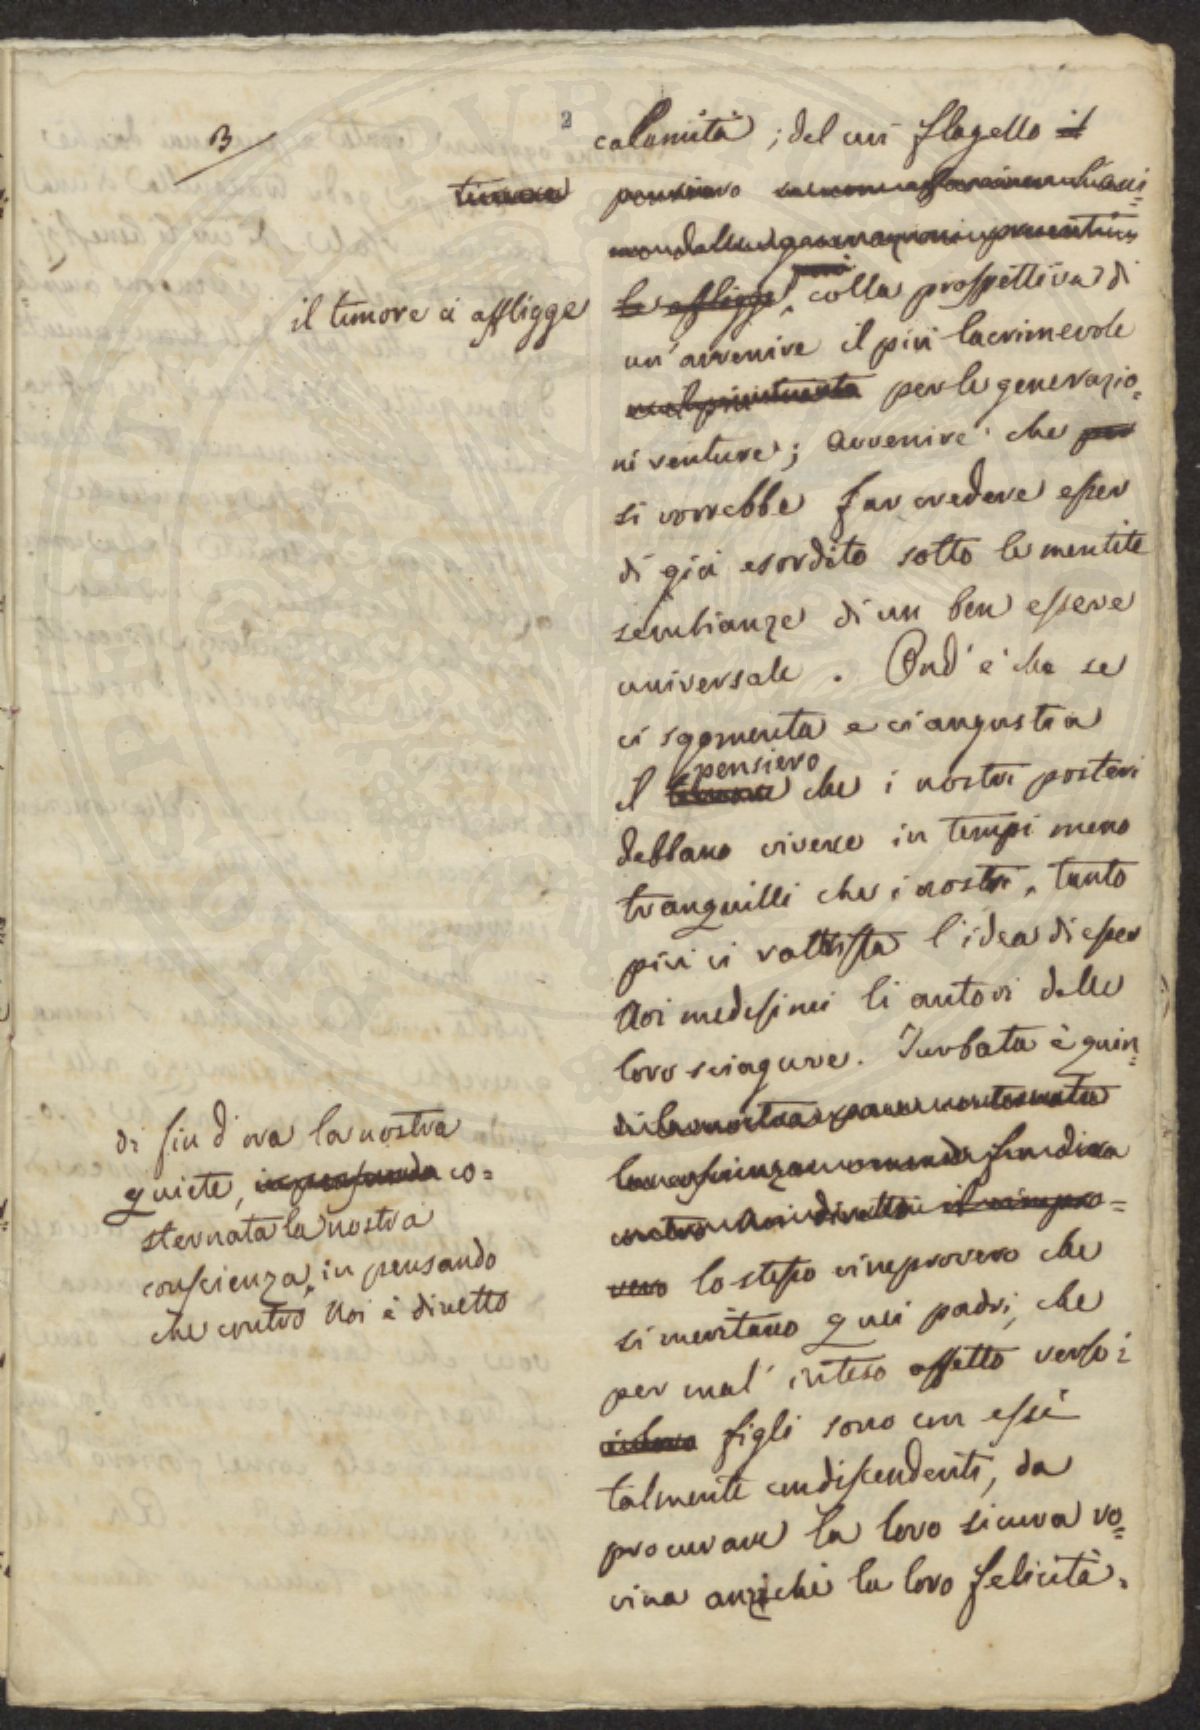 3
2
calamità ; del un flagello il
timore pensiero
il timore ci affligge
le affligge, più colla prospettiva di
un' avvenire il più lacrimevole
per le generazio=
ni venture; avvenire che per
si vorrebbe far credere esser
di già esordito sotto le mentite
sembianze di un ben essere
universale. Ond' è che se
ci sgomenta e ci angustia
pensiero
il timore che i nostri posteri
debbano vivere in tempi meno
tranquilli che i nostri, tanto
più ci rattrista l'idea di esser
Noi medesimi li autori delle
loro sciagure. Turbata è quin=
di la nostra
di fin d'ora la nostra
quiete, co=
sternata la nostra
conscienza, in pensando
che contro Noi è diretto
la conscienza fin di ora
contro Noi diretto il rimpro=
vero lo stesso rimprovero che
si meritano quei padri, che
per mal' inteso affetto verso i
figli sono con essi
talmente condiscendenti, da
procurare la loro sicura ro=
vina anzichè la loro felicità.